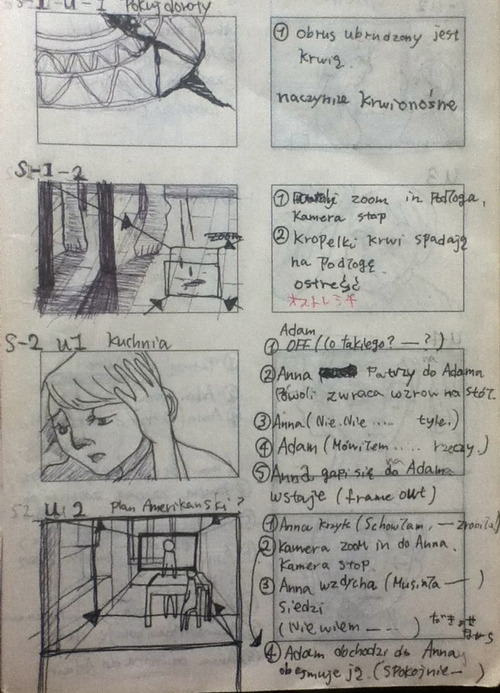 S-1-U-1 Pokuj doroty
① obrus ubrudzony jest
krwią
naczynize krwionośne
S-1-2
① zoom in Podłoga,
Kamera stop
zoom
② Kropelki krwi spadają
na Podłogę
ostrość
S-2 U1 Kuchnia
Adam
① OFF (Co takiego? — ?)
② Anna Patrzy do Adama
Powoli zwraca wzrow na stół.
③ Anna (Nie. Nie .... tyle.)
④ Adam (Mówiłem ..... rzeczy.)
⑤ Anna gapi się do Adama
wstaje (frame out)
S2 U:2 Plan Amerikanski?
① Anna Krzyk (Schowłam, — zrobiła)
② Kamera zoom in do Anna.
Kamera stop.
③ Anna wzdycha (Musiała — )
siedzi
(Nie wiem — — . )
④ Adam obchodzi do Anna
obejmuje ją. (Spokojnie — )